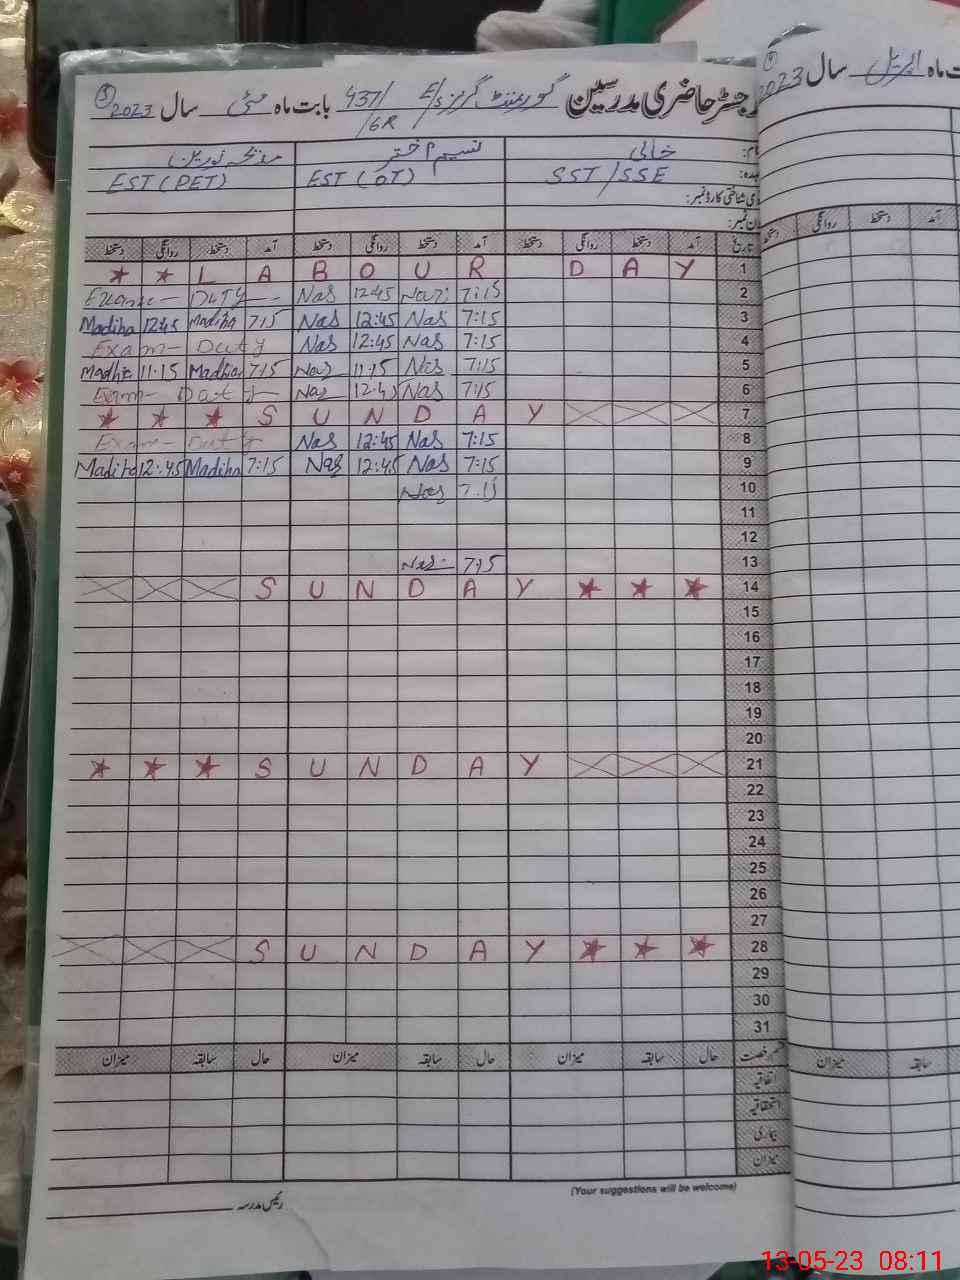 رجسٹر حاضری مدرسین گورنمنٹ گرلز E/S 437/6R بابت ماہ مئی سال 2023 5
خالی نسیم اختر مدیحہ نورین
SST/SSE EST (OT) EST (PET)
شناختی کارڈ نمبر:
تاریخ آمد دستخط روانگی دستخط آمد دستخط روانگی دستخط آمد دستخط روانگی دستخط
L A B O U R D A Y 1
Duty Nas 12:45 7:15 2
Madiha 12:45 Madiha 7:15 Nas 12:45 Nas 7:15 3
Exam - Duty Nas 12:45 Nas 7:15 4
Madiha 11:15 Madiha 7:15 Nas 11:15 Nas 7:15 5
Exam - Duty Nas 12:45 Nas 7:15 6
S U N D A Y 7
Exam - Duty Nas 12:45 Nas 7:15 8
Madiha 12:45 Madiha 7:15 Nas 12:45 Nas 7:15 9
Nas 7:15 10
11
12
Nas 7:15 13
S U N D A Y 14
15
16
17
18
19
20
S U N D A Y 21
22
23
24
25
26
27
S U N D A Y 28
29
30
31
رخصت حال سابقہ میزان حال سابقہ میزان حال سابقہ میزان
اتفاقیہ
استحقاقیہ
بیماری
میزان
(Your suggestions will be welcome)
رئیس مدرسہ
ماہ اپریل سال 2023
آمد دستخط روانگی دستخط
سابقہ میزان
13-05-23 08:11